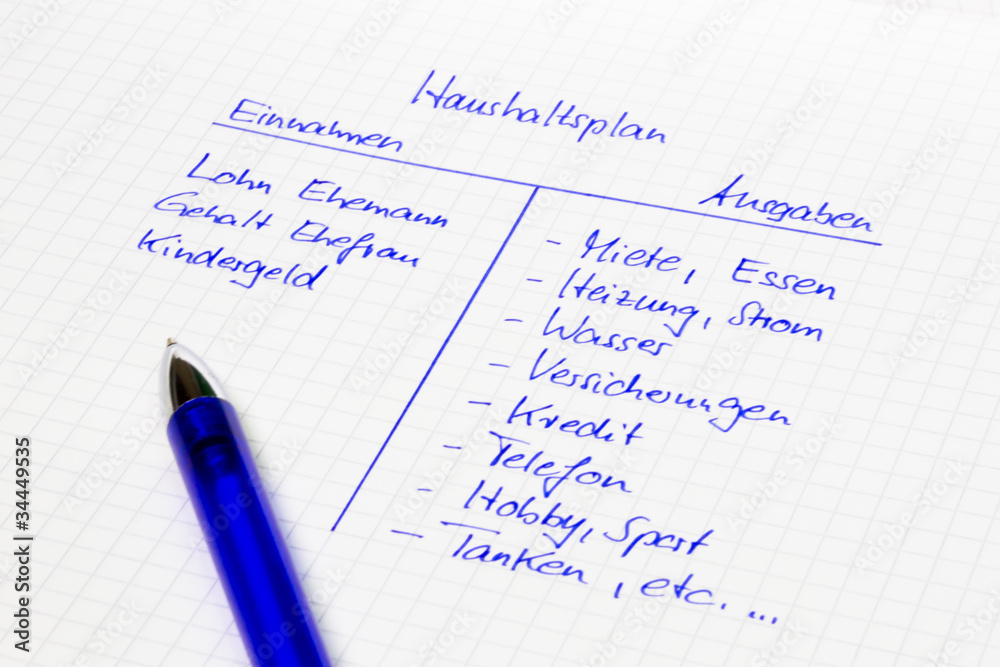 Haushaltsplan
Einnahmen
Ausgaben
Lohn Ehemann
Gehalt Ehefrau
Kindergeld
- Miete, Essen
- Heizung, Strom
- Wasser
- Versicherungen
- Kredit
- Telefon
- Hobby, Sport
- Tanken, etc. ...
Adobe Stock | #34449535